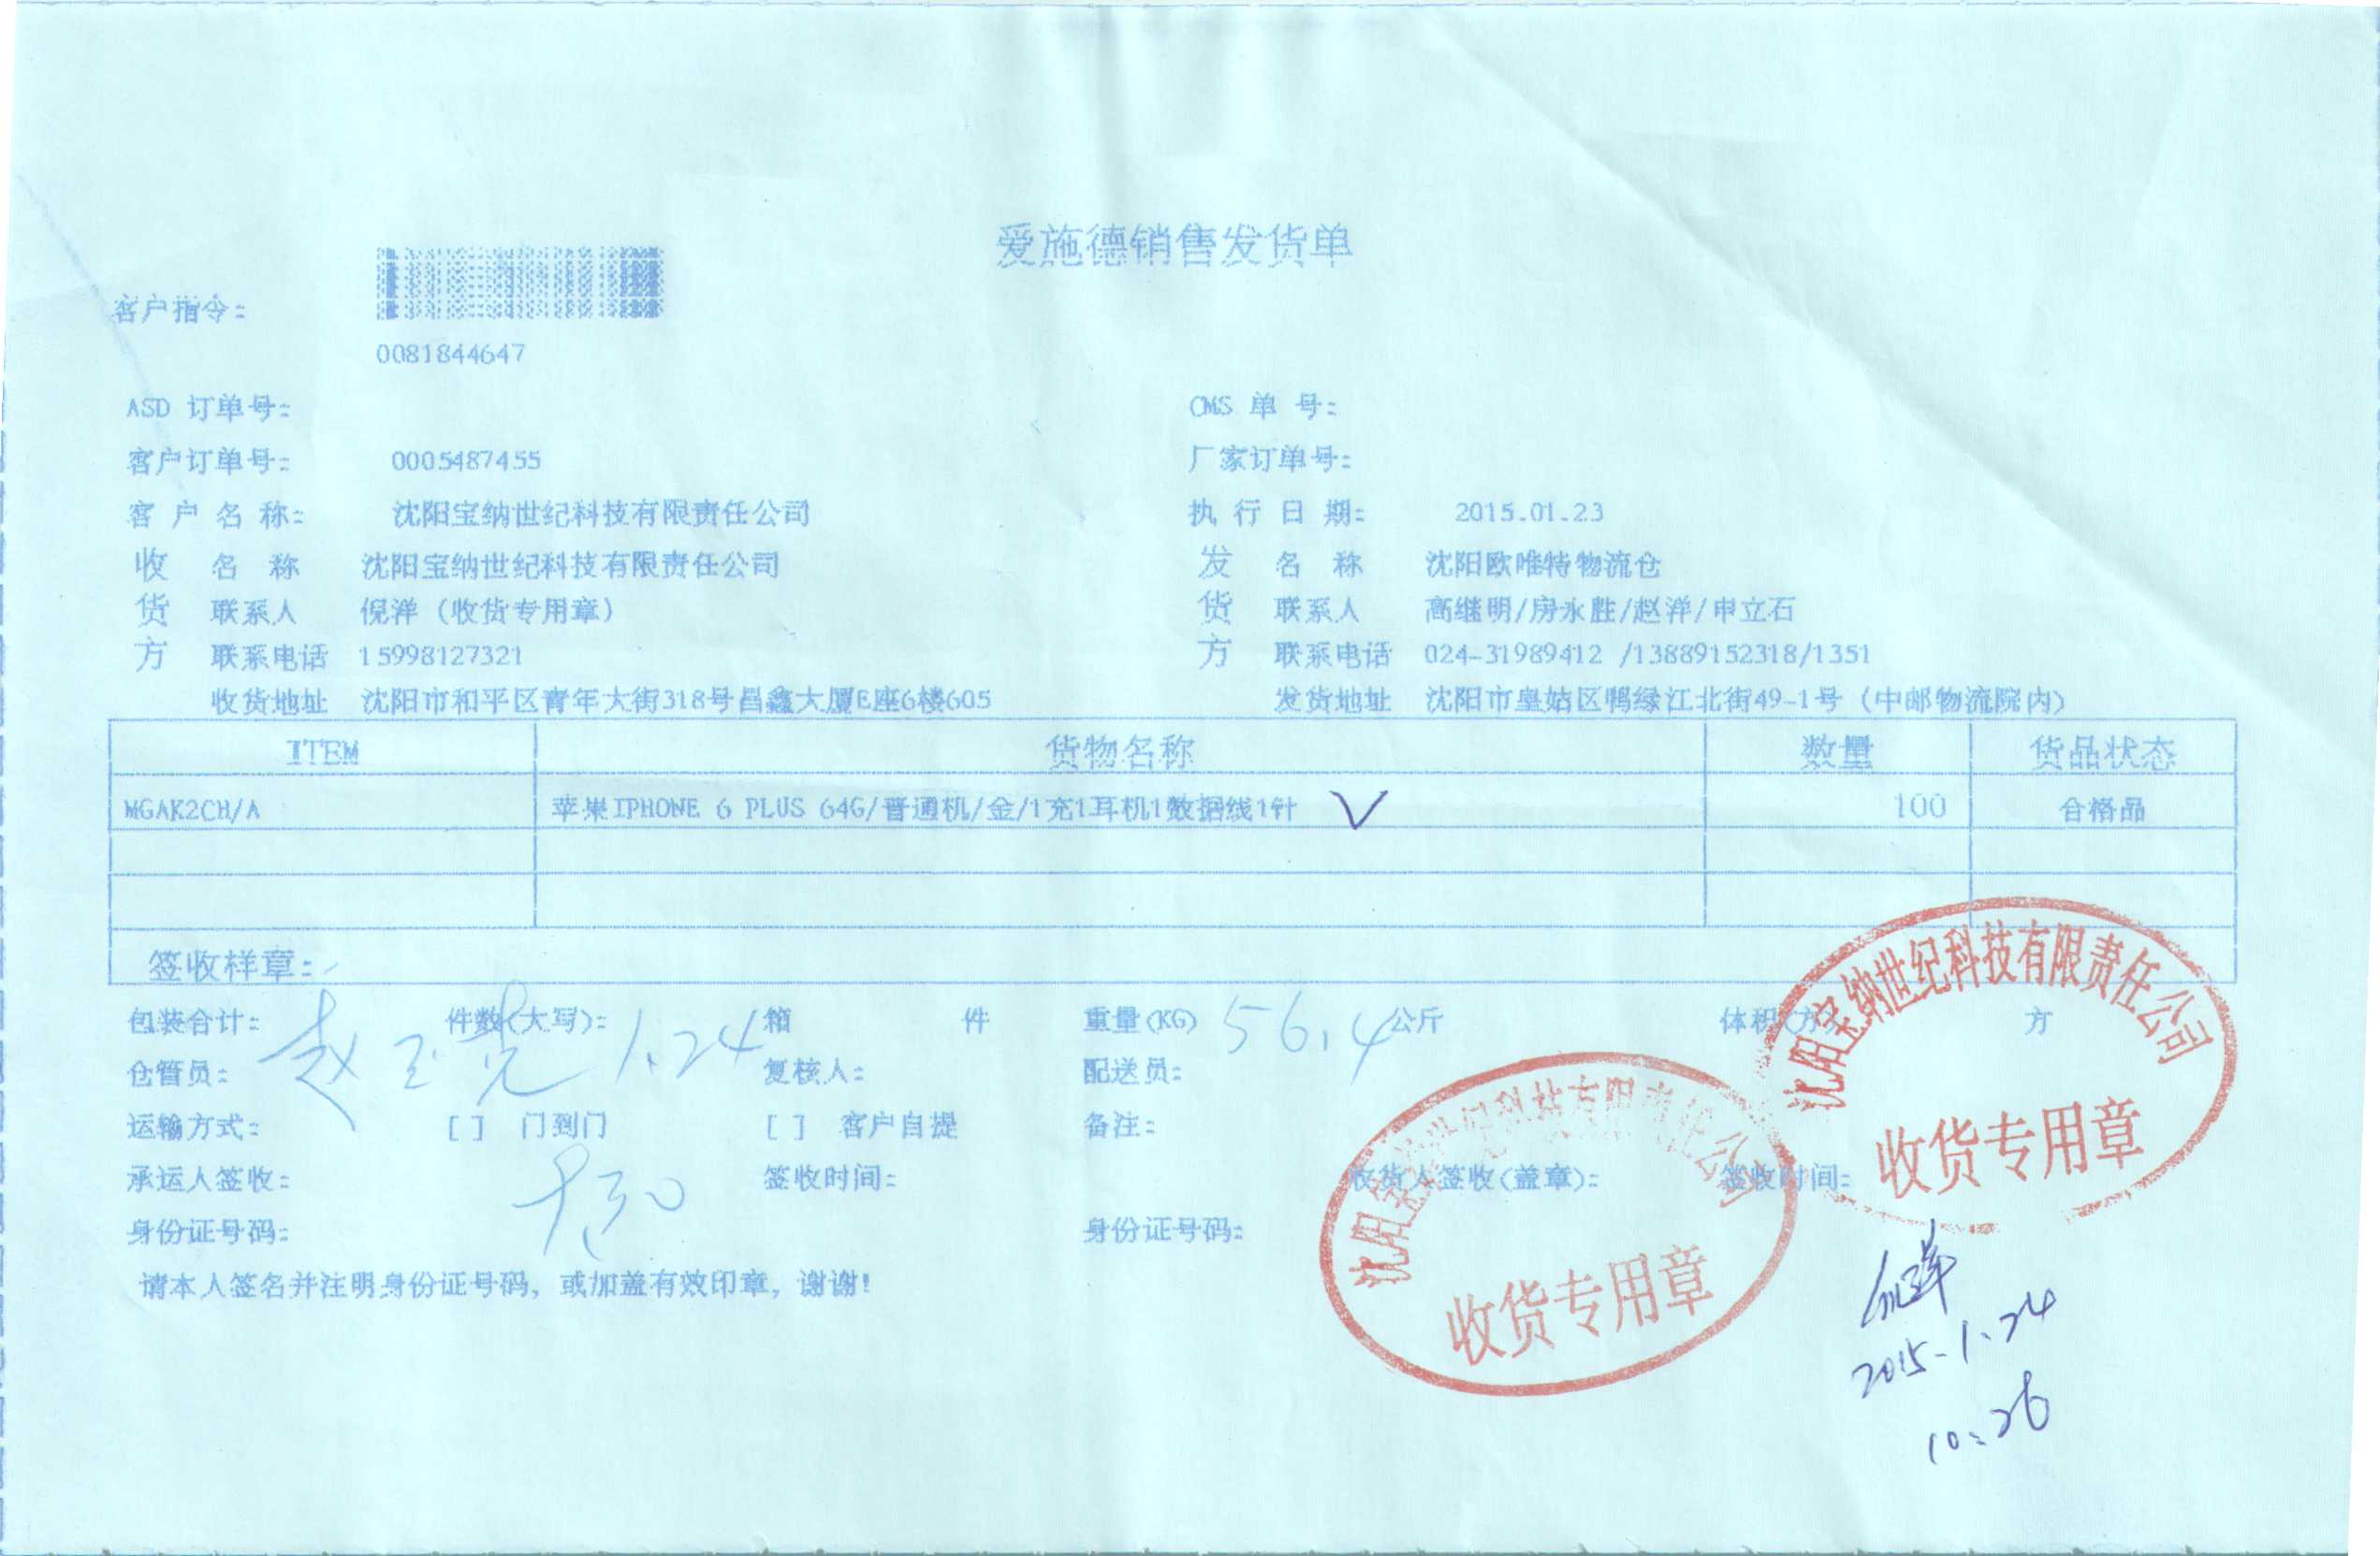 爱施德销售发货单
客户指令:
0081844647
ASD 订单号: CMS 单 号:
客户订单号: 0005487455 厂家订单号:
客 户 名 称: 沈阳宝纳世纪科技有限责任公司 执 行 日 期: 2015.01.23
收 名 称 沈阳宝纳世纪科技有限责任公司 发 名 称 沈阳欧唯特物流仓
货 联系人 倪洋（收货专用章） 货 联系人 高继明/房永胜/赵洋/申立石
方 联系电话 15998127321 方 联系电话 024-31989412 /13889152318/1351
收货地址 沈阳市和平区青年大街318号昌鑫大厦E座6楼605 发货地址 沈阳市皇姑区鸭绿江北街49-1号（中邮物流院内）
ITEM 货物名称 数量 货品状态
MGAK2CH/A 苹果IPHONE 6 PLUS 64G/普通机/金/1充1耳机1数据线1针 100 合格品
签收样章:
包装合计: 件数(大写): 箱 件 重量(KG) 56.4 公斤 体积(方) 方
1.24
仓管员: 复核人: 配送员:
运输方式: [ ] 门到门 [ ] 客户自提 备注:
承运人签收: 签收时间: 收货人签收(盖章): 签收时间:
身份证号码: 身份证号码:
请本人签名并注明身份证号码，或加盖有效印章，谢谢!
沈阳宝纳世纪科技有限责任公司
收货专用章
沈阳宝纳世纪科技有限责任公司
收货专用章
倪洋
2015-1.24
10:26